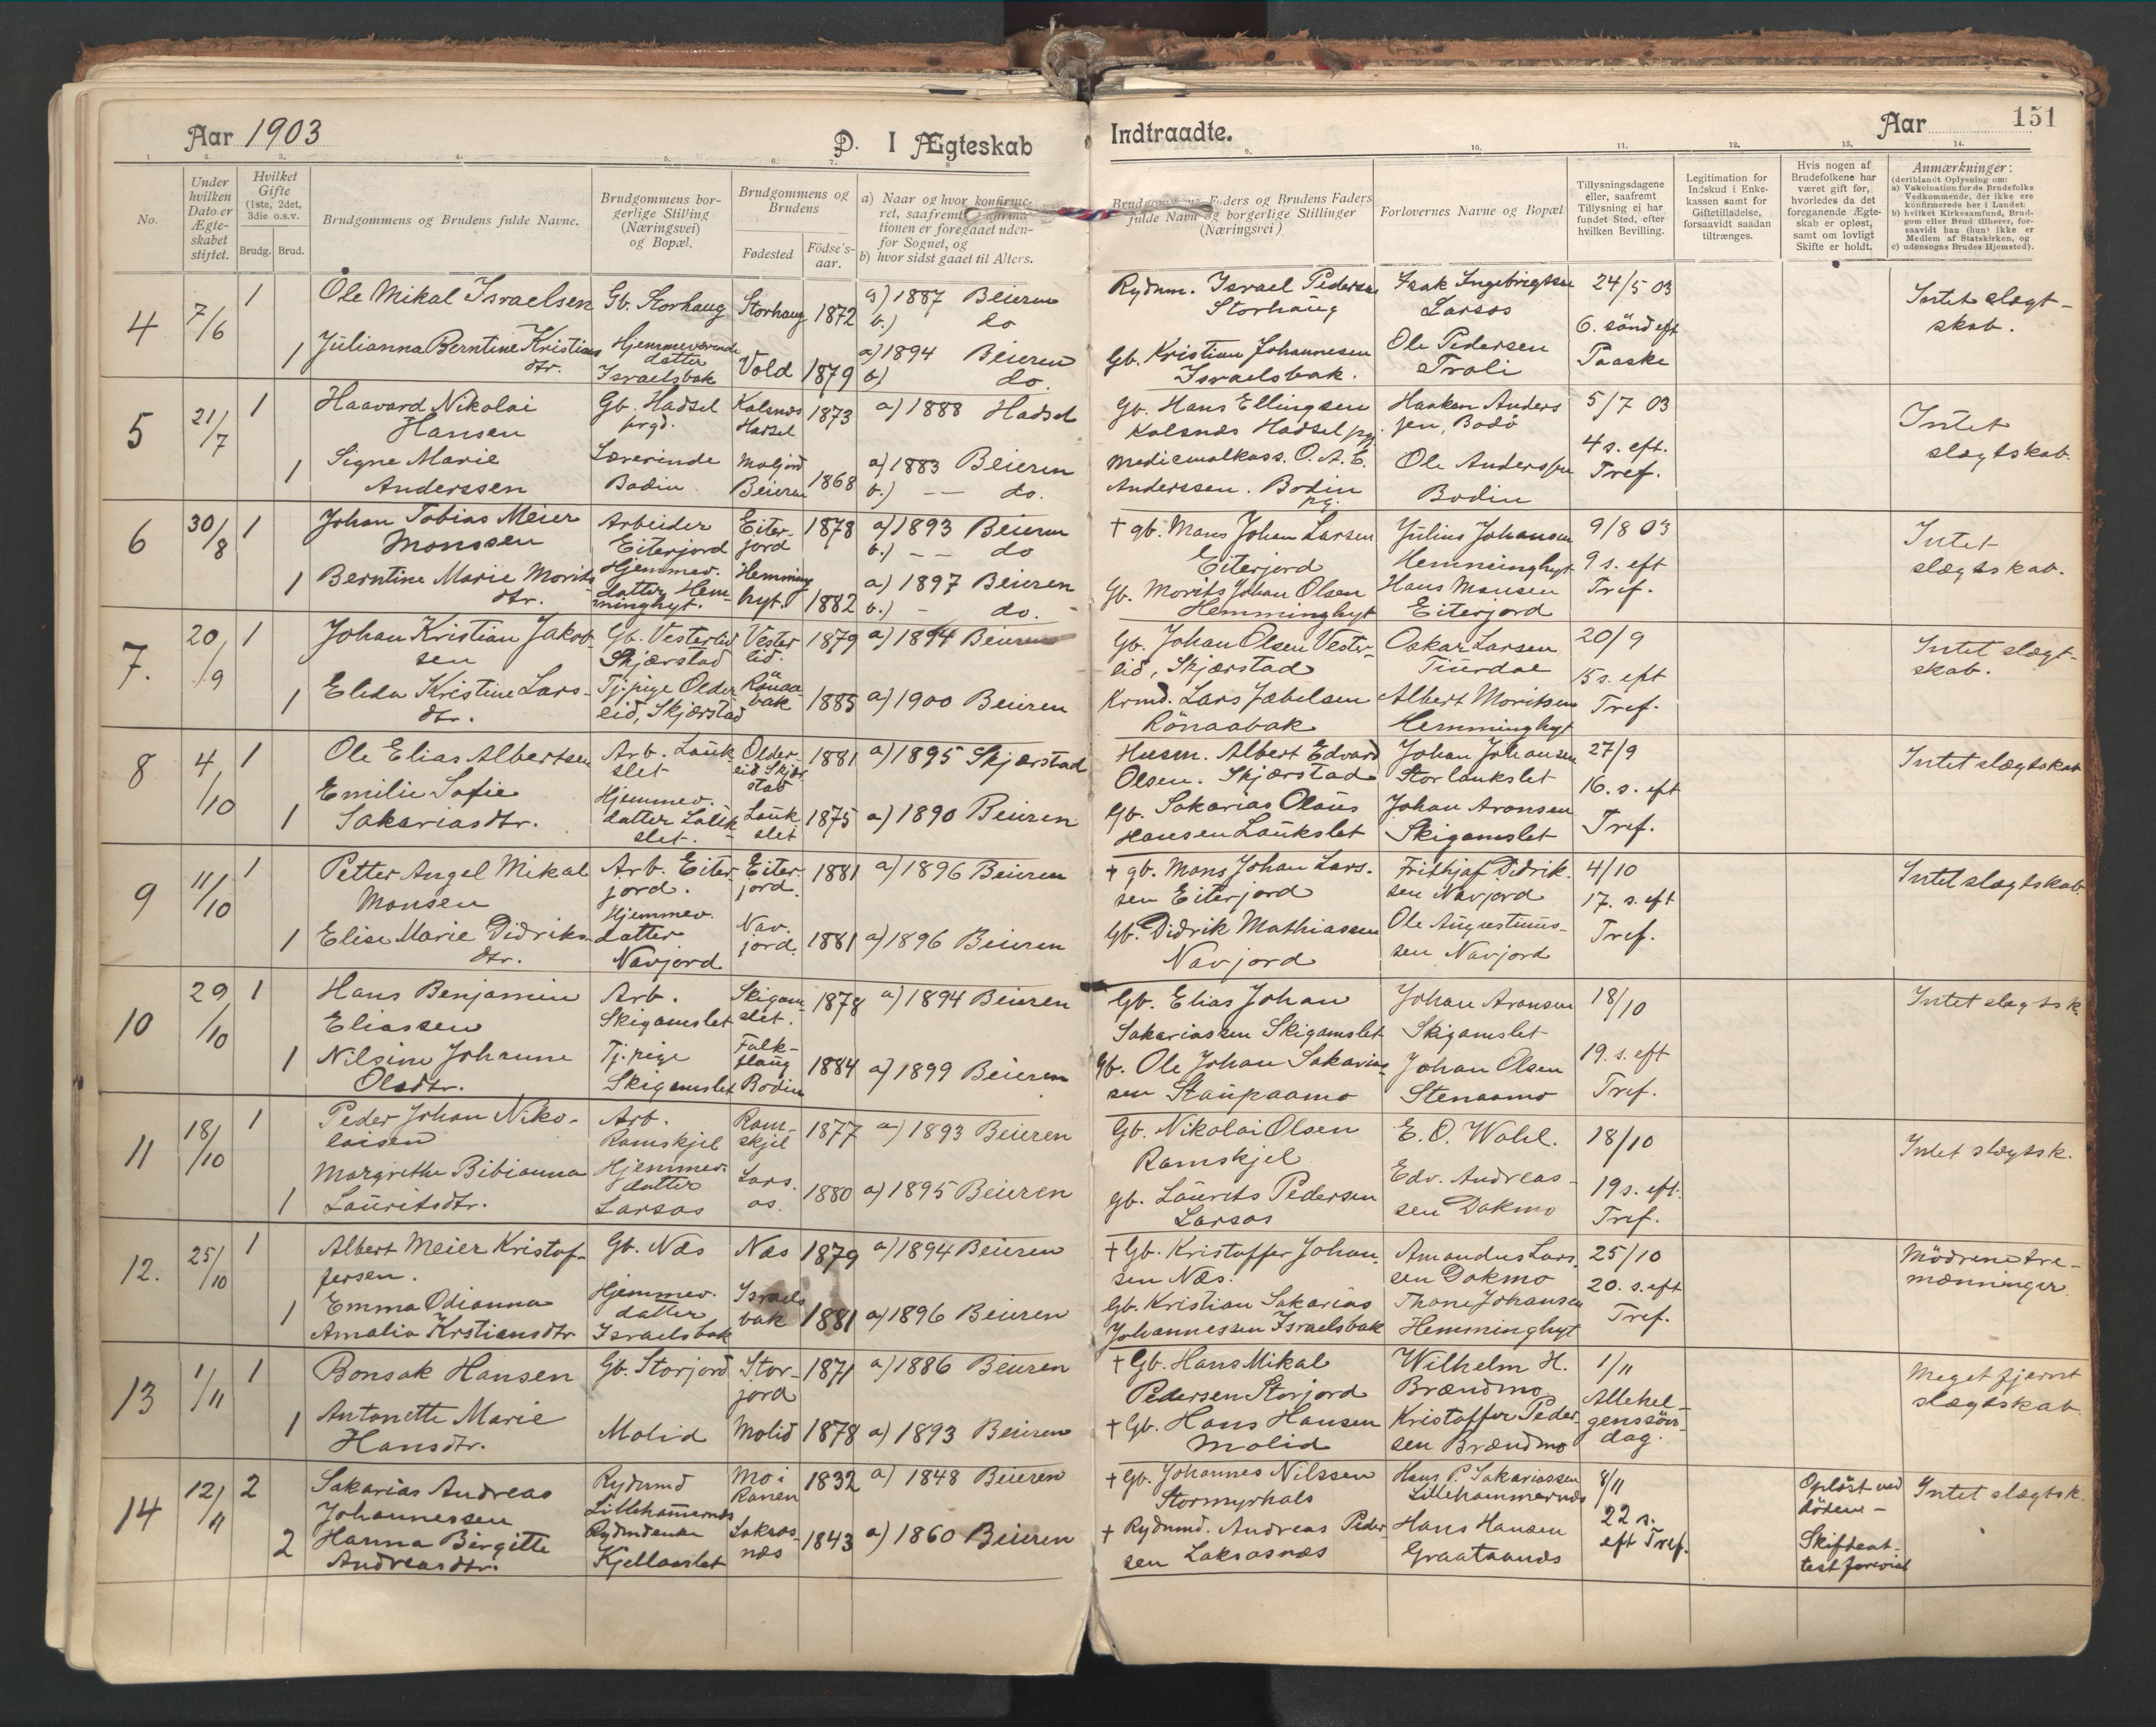 Aar 1903
D. I Ægteskab
Indtraadte.
Aar
151
1. 2. 3. 4. 5. 6. 7. 8. 9. 10. 11. 12. 13. 14.
No.
Under hvilken Dato er Ægteskabet stiftet.
Hvilket Gifte (1ste, 2det, 3die o.s.v.
Brudg. Brud.
Brudgommens og Brudens fulde Navne.
Brudgommens borgerlige Stilling (Næringsvei) og Bopæl.
Brudgommens og Brudens
Fødested
Fødse's-aar.
a) Naar og hvor konfirmeret, saafremt
tionen er foregaaet udenfor Sognet, og
b) hvor sidst gaaet til Alters.
Faders og Brudens Faders
fulde Navn og borgerlige Stillinger
(Næringsvei)
Forlovernes Navne og Bopæl
Tillysningsdagene eller, saafremt Tillysning ej har fundet Sted, efter hvilken Bevilling.
Legitimation for Indskud i Enkekassen samt for Giftetilladelse, forsaavidt saadan tiltrænges.
Hvis nogen af Brudefolkene har været gift før, hvorledes da det foregaaende Ægteskab er opløst, samt om lovligt Skifte er holdt.
Anmærkninger:
(deriblandt Oplysning om:
a) Vakcination for de Brudefolks Vedkommende, der ikke ere konfirmerede her i Landet:
b) hvilket Kirkesamfund, Brudgom eller Brud tilhører, forsaavidt han (hun) ikke er Medlem af Statskirken, og
c) udensogns Brudes Hjemsted).
4
7/6
1
Ole Mikal Israelsen
Gb. Storhaug
Storhaug
1872
a) 1887 Beieren
b.) do
Rydnm. Israel Pedersen
Storhaug
Isak Ingebrigtsen
Larsos
24/5 03
6. sönd eft
Paaske
Intet slægt-
skab.
1
Julianna Berntine Kristians
dtr.
Hjemmeværende
datter
Israelsbak
Vold
1879
a) 1894 Beieren
b) do.
Gb. Kristian Johannesen
Israelsbak.
Ole Pedersen
Troli
5
21/7
1
Haavard Nikolai
Hansen
Gb. Hadsel
prgd.
Kalsnæs
Hadsel
1873
a) 1888 Hadsel
Gb. Hans Ellingsen
Kalsnæs Hadsel pg.
Haaken Anders
sen, Bodö
5/7 03
4 s. eft.
Tref.
Intet
slægtskab.
1
Signe Marie
Anderssen
Lærerinde
Bodin
Moljord
Beieren
1868
a) 1883 Beieren
b.) — — do.
Medicinalkass. O. A. E.
Anderssen. Bodin
pg.
Ole Anderssen
Bodin
6
30/8
1
Johan Tobias Meier
Monssen
Arbeider
Eiterjord
Eiter-
jord
1878
a) 1893 Beieren
b.) — — do
† gb. Mons Johan Larsen
Eiterjord
Julius Johansen
Hemminghyt
9/8 03
9 s. eft
Tref.
Intet
slægtskab.
1
Berntine Marie Morits
dtr.
Hjemmev.
datter Hem-
minghyt.
Hemming
hyt.
1882
a) 1897 Beieren
b.) - do.
Gb. Morits Johan Olsen
Hemminghyt
Hans Monsen
Eiterjord
7.
20/9
1
Johan Kristian Jakob-
sen
Gb. Vesterlid
Skjærstad
Vester
lid.
1879
a) 1894 Beieren
Gb. Johan Olsen Vester-
lid, Skjærstad
Oskar Larsen
20/9
15 s. eft
Tref.
Intet slægt-
skab.
1
Elida Kristine Lars-
dtr.
Tj.pige Older-
eid, Skjærstad
Rönaa-
bak
1885
a) 1900 Beieren
Krmd. Lars Jæbelsen
Rönaabak
Albert Moritsen
Hemminghyt
8
4/10
1
Ole Elias Albertsen
Arb. Lauk-
slet
Older-
eid Skjær
stad
1881
a) 1895 Skjærstad
Husm. Albert Edvard
Olsen. Skjærstad
Johan Johansen
Storlaukslet
27/9
16. s. eft
Tref.
Intet slægtskab
1
Emilie Sofie
Sakariasdtr.
Hjemmev.
datter Lauk-
slet.
Lauk
slet
1875
a) 1890 Beieren
Gb. Sakarias Olaus
Hansen Laukslet
Johan Aronsen
Skigamslet
9
11/10
1
Petter Angel Mikal
Monsen
Arb. Eiter-
jord.
Eiter-
jord.
1881
a) 1896 Beieren
† gb. Mons Johan Lars.
sen Eiterjord
Frithjof Didrik.
sen Navjord
4/10
17. s. eft
Tref.
Intet slægtskab.
1
Elise Marie Didriks
dtr.
Hjemmev.
datter
Navjord
Nav.
jord.
1881
a) 1896 Beieren
Gb. Didrik Mathiassen
Navjord
Ole Augustinus-
sen Navjord
10
29/10
1
Hans Benjamin
Eliassen
Arb.
Skigamslet
Skigam-
slet.
1878
a) 1894 Beieren
Gb. Elias Johan
Sakariassen Skigamslet
Johan Aronsen
Skigamslet
18/10
19. s. eft
Tref.
Intet slægtsk.
1
Nilsine Johanne
Olsdtr.
Tj.pige
Skigamslet
Falk-
flaug
Bodin
1884
a) 1899 Beieren
Gb. Ole Johan Sakarias-
sen Staupaamo
Johan Olsen
Stenaamo
11
18/10
1
Peder Johan Niko-
laisen
Arb.
Ramskjel
Ram-
skjel
1877
a) 1893 Beieren
Gb. Nikolai Olsen
Ramskjel
E. O. Wahl.
18/10
19 s. eft.
Tref.
Intet slægtsk.
1
Margrethe Bibianna
Lauritsdtr.
Hjemmev.
datter
Larsos
Lars.
os.
1880
a) 1895 Beieren
gb. Laurits Pedersen
Larsos
Edv. Andreas-
sen Dokmo
12.
25/10
1
Albert Meier Kristof-
fersen.
Gb. Næs
Næs
1879
a) 1894 Beieren
† Gb. Kristoffer Johan-
sen Næs.
Amandus Lars-
sen Dokmo
25/10
20. s. eft
Tref.
Mödrene tre-
mænninger
1
Emma Odianna
Amalia Krstiansdtr
Hjemmev.
datter
Israelsbak
Israels
bak
1881
a) 1896 Beieren
Gb. Kristian Sakarias
Johannessen Israelsbak
Thone Johansen
Hemminghyt
13
1/11
1
Bonsak Hansen
Gb. Storjord
Stor-
jord
1871
a) 1886 Beieren
† Gb. Hans Mikal
Pedersen Storjord
Wilhelm H.
Brændmo
1/11
Allehel-
genssön-
dag.
Meget fjernt
slægtskab
1
Antonette Marie
Hansdtr.
Molid
Molid
1878
a) 1893 Beieren
† Gb. Hans Hansen
Molid
Kristoffer Peder-
sen Brændmo
14
12/11
2
Sakarias Andreas
Johannessen
Rydnmd
Lillehammernæs
Mo i
Ranen
1832
a) 1848 Beieren
† Gb. Johannes Nilssen
Stormyrhals
Hans P. Sakariassen
Lillehammernæs
8/11
22 s.
eft Tref.
Oplöst ved
döden -
Skifteat-
test forevist
Intet slægtsk.
2
Hanna Birgitte
Andreasdtr.
Rydmdenke
Kjellaaslet
Laksos-
næs
1843
a) 1860 Beieren
† Rydnmd. Andreas Peder-
sen Laksosnæs
Hans Hansen
Graatanæs